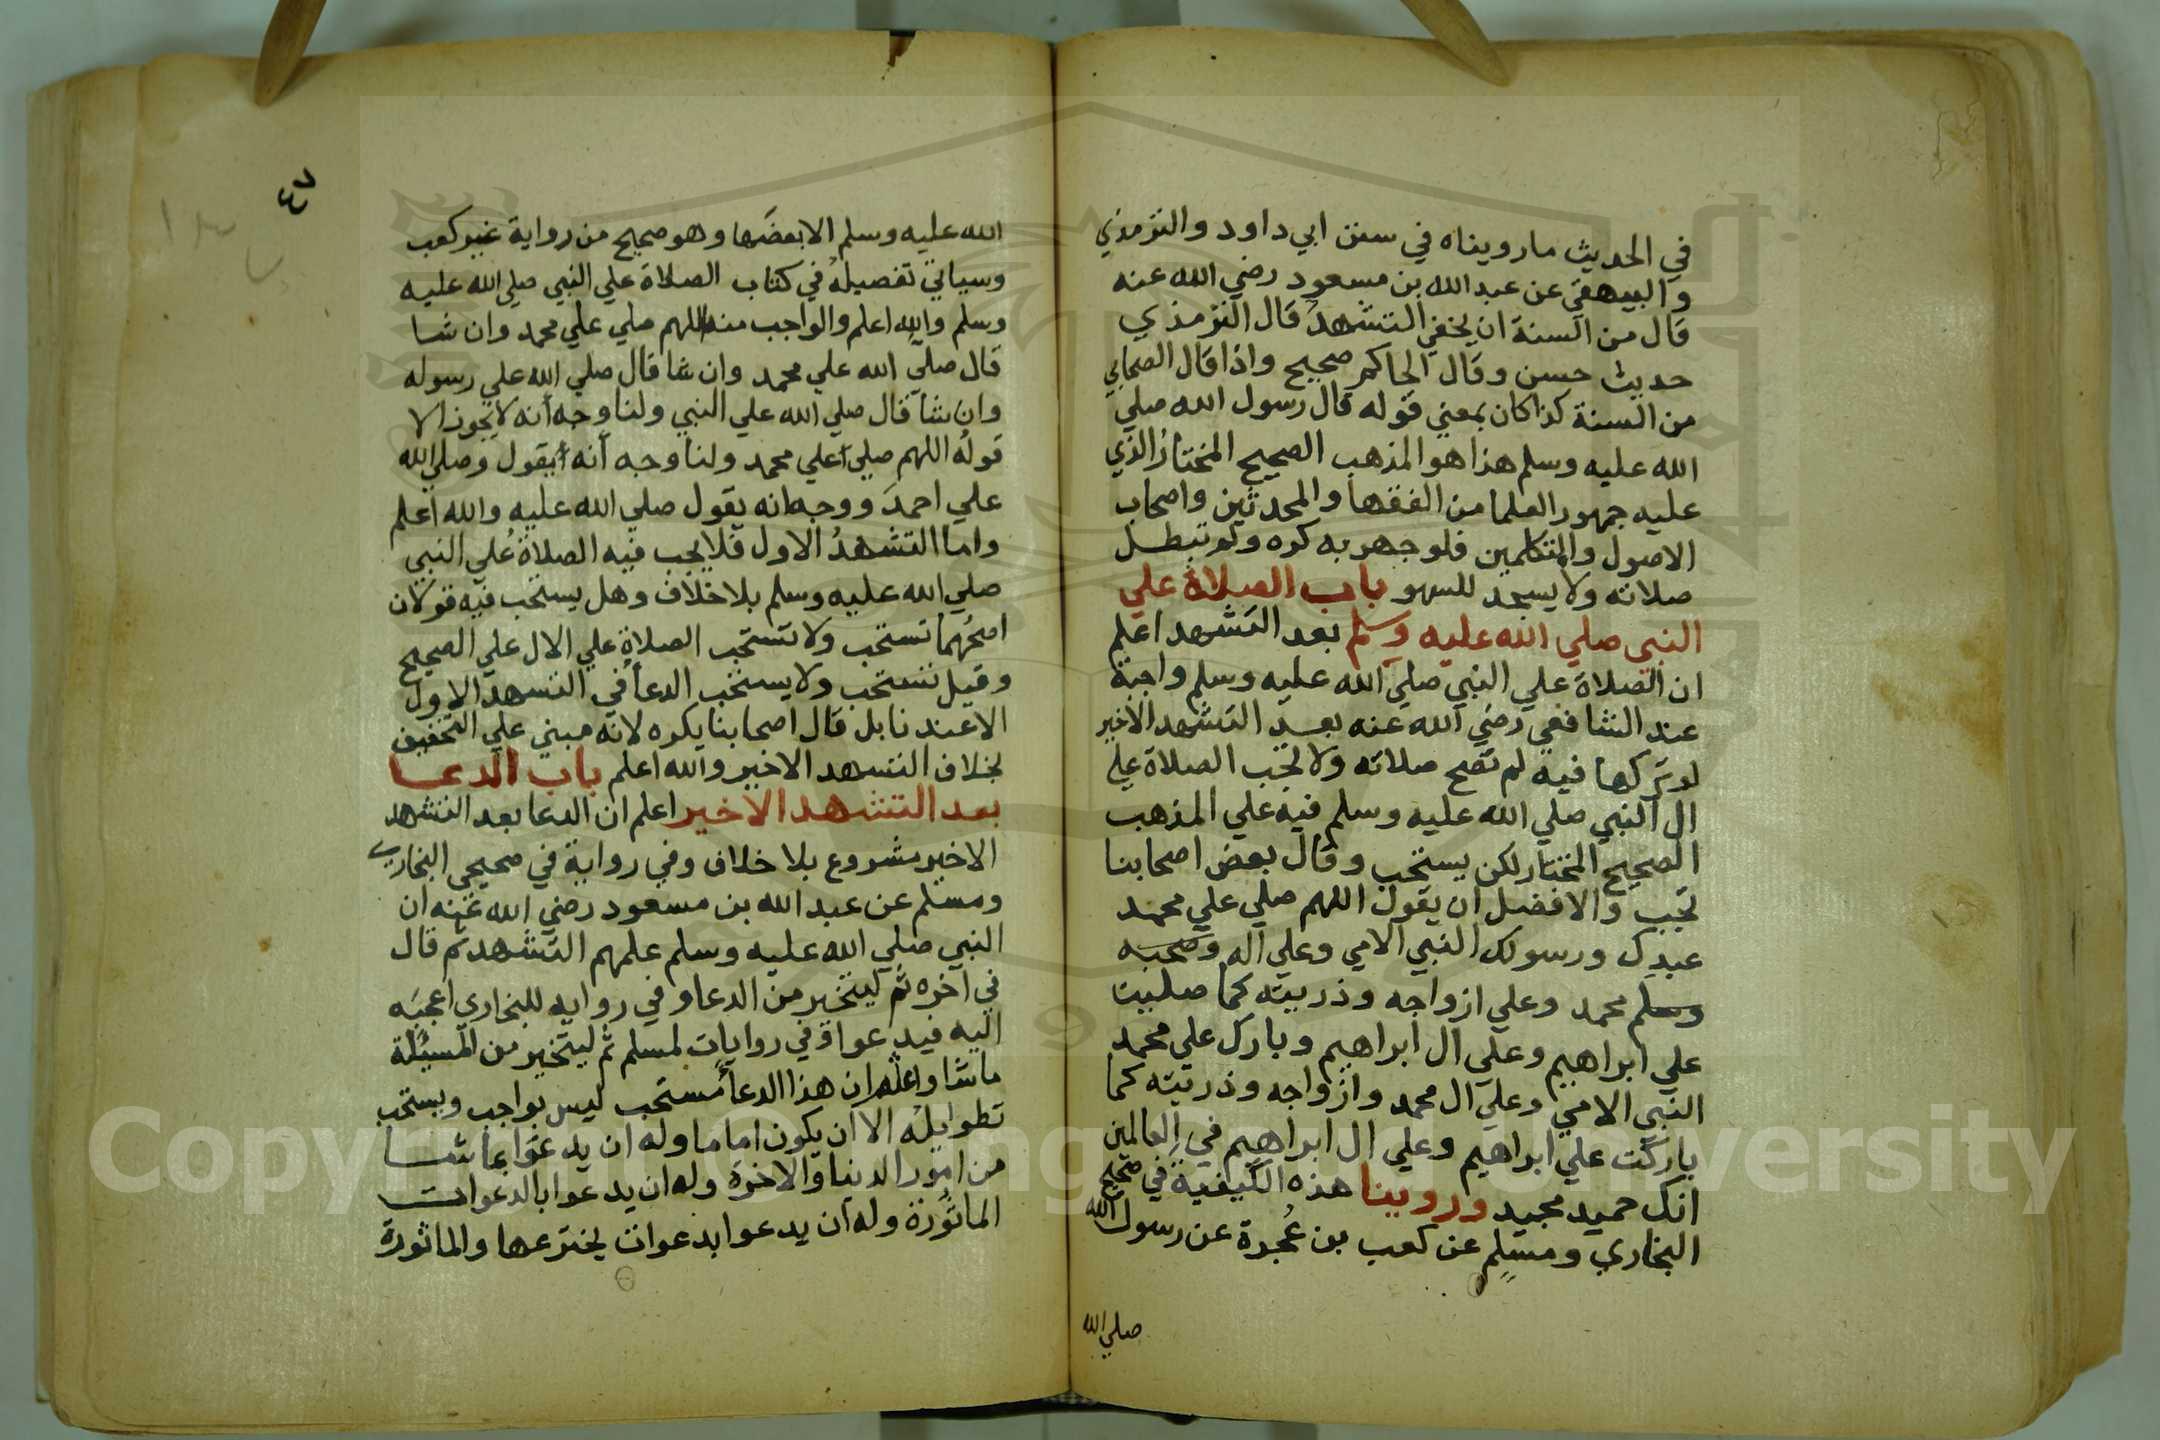 في الحديث ما رويناه في سنن ابي داود والترمذي
والبيهقي عن عبد الله بن مسعود رضي الله عنه
قال من السنة ان يخفي التشهد قال الترمذي
حديث حسن وقال الحاكم صحيح واذا قال الصحابي
من السنة كذا كان بمعني قوله قال رسول الله صلي
الله عليه وسلم هذا هو المذهب الصحيح المختار الذي
عليه جمهور العلما من الفقها والمحدثين واصحاب
الاصول والمتكلمين فلو جهر به كره ولم تبطل
صلاته ولا يسجد للسهو باب الصلاة علي
النبي صلي الله عليه وسلم بعد التشهد اعلم
ان الصلاة علي النبي صلي الله عليه وسلم واجبة
عند الشافعي رضي الله عنه بعد التشهد الاخير
لو تركها فيه لم تصح صلاته ولا تجب الصلاة علي
ال النبي صلي الله عليه وسلم فيه علي المذهب
الصحيح المختار لكن يستحب وقال بعض اصحابنا
تجب والافضل ان يقول اللهم صلي علي محمد
عبدك ورسولك النبي الامي وعلي اله وصحبه
وسلم محمد وعلي ازواجه وذريته كما صليت
علي ابراهيم وعلي ال ابراهيم وبارك علي محمد
النبي الامي وعلي ال محمد وازواجه وذريته كما
باركت علي ابراهيم وعلي ال ابراهيم في العالمين
انك حميد مجيد وروينا هذه الكيفية في صحيح
البخاري ومسلم عن كعب بن عُجرة عن رسول الله
صلي الله
٤٧
الله عليه وسلم الا بعضها وهو صحيح من رواية غير كعب
وسياتي تفصيله في كتاب الصلاة علي النبي صلي الله عليه
وسلم والله اعلم والواجب منه اللهم صلي علي محمد وان شا
قال صلي الله علي محمد وان شا قال صلي الله علي رسوله
وان شا قال صلي الله علي النبي ولنا وجه انه لا يجوز الا
قوله اللهم صلي علي محمد ولنا وجه انه يقول وصلي الله
علي احمد ووجه انه يقول صلي الله عليه والله اعلم
واما التشهد الاول فلا يجب فيه الصلاة علي النبي
صلي الله عليه وسلم بلا خلاف وهل يستحب فيه قولان
اصحهما تستحب ولا تستحب الصلاة علي الال علي الصحيح
وقيل تستحب ولا يستحب الدعا في التشهد الاول
الا عندنا بل قال اصحابنا يكره لانه مبني علي التخفيف
بخلاف التشهد الاخير والله اعلم باب الدعا
بعد التشهد الاخير اعلم ان الدعا بعد التشهد
الاخير مشروع بلا خلاف وفي رواية في صحيحي البخاري
ومسلم عن عبد الله بن مسعود رضي الله عنه ان
النبي صلي الله عليه وسلم علمهم التشهد ثم قال
في اخره ثم ليتخير من الدعا وفي روايه للبخاري اعجبه
اليه فيدعوا وفي روايات لمسلم ثم ليتخير من المسئلة
ما شا واعلم ان هذا الدعا مستحب ليس بواجب ويستحب
تطويله الا ان يكون اماما وله ان يدعوا بما شا
من امور الدنيا والاخرة وله ان يدعوا بالدعوات
الماثورة وله ان يدعوا بدعوات يخترعها والماثورة
Copyright © King Saud University